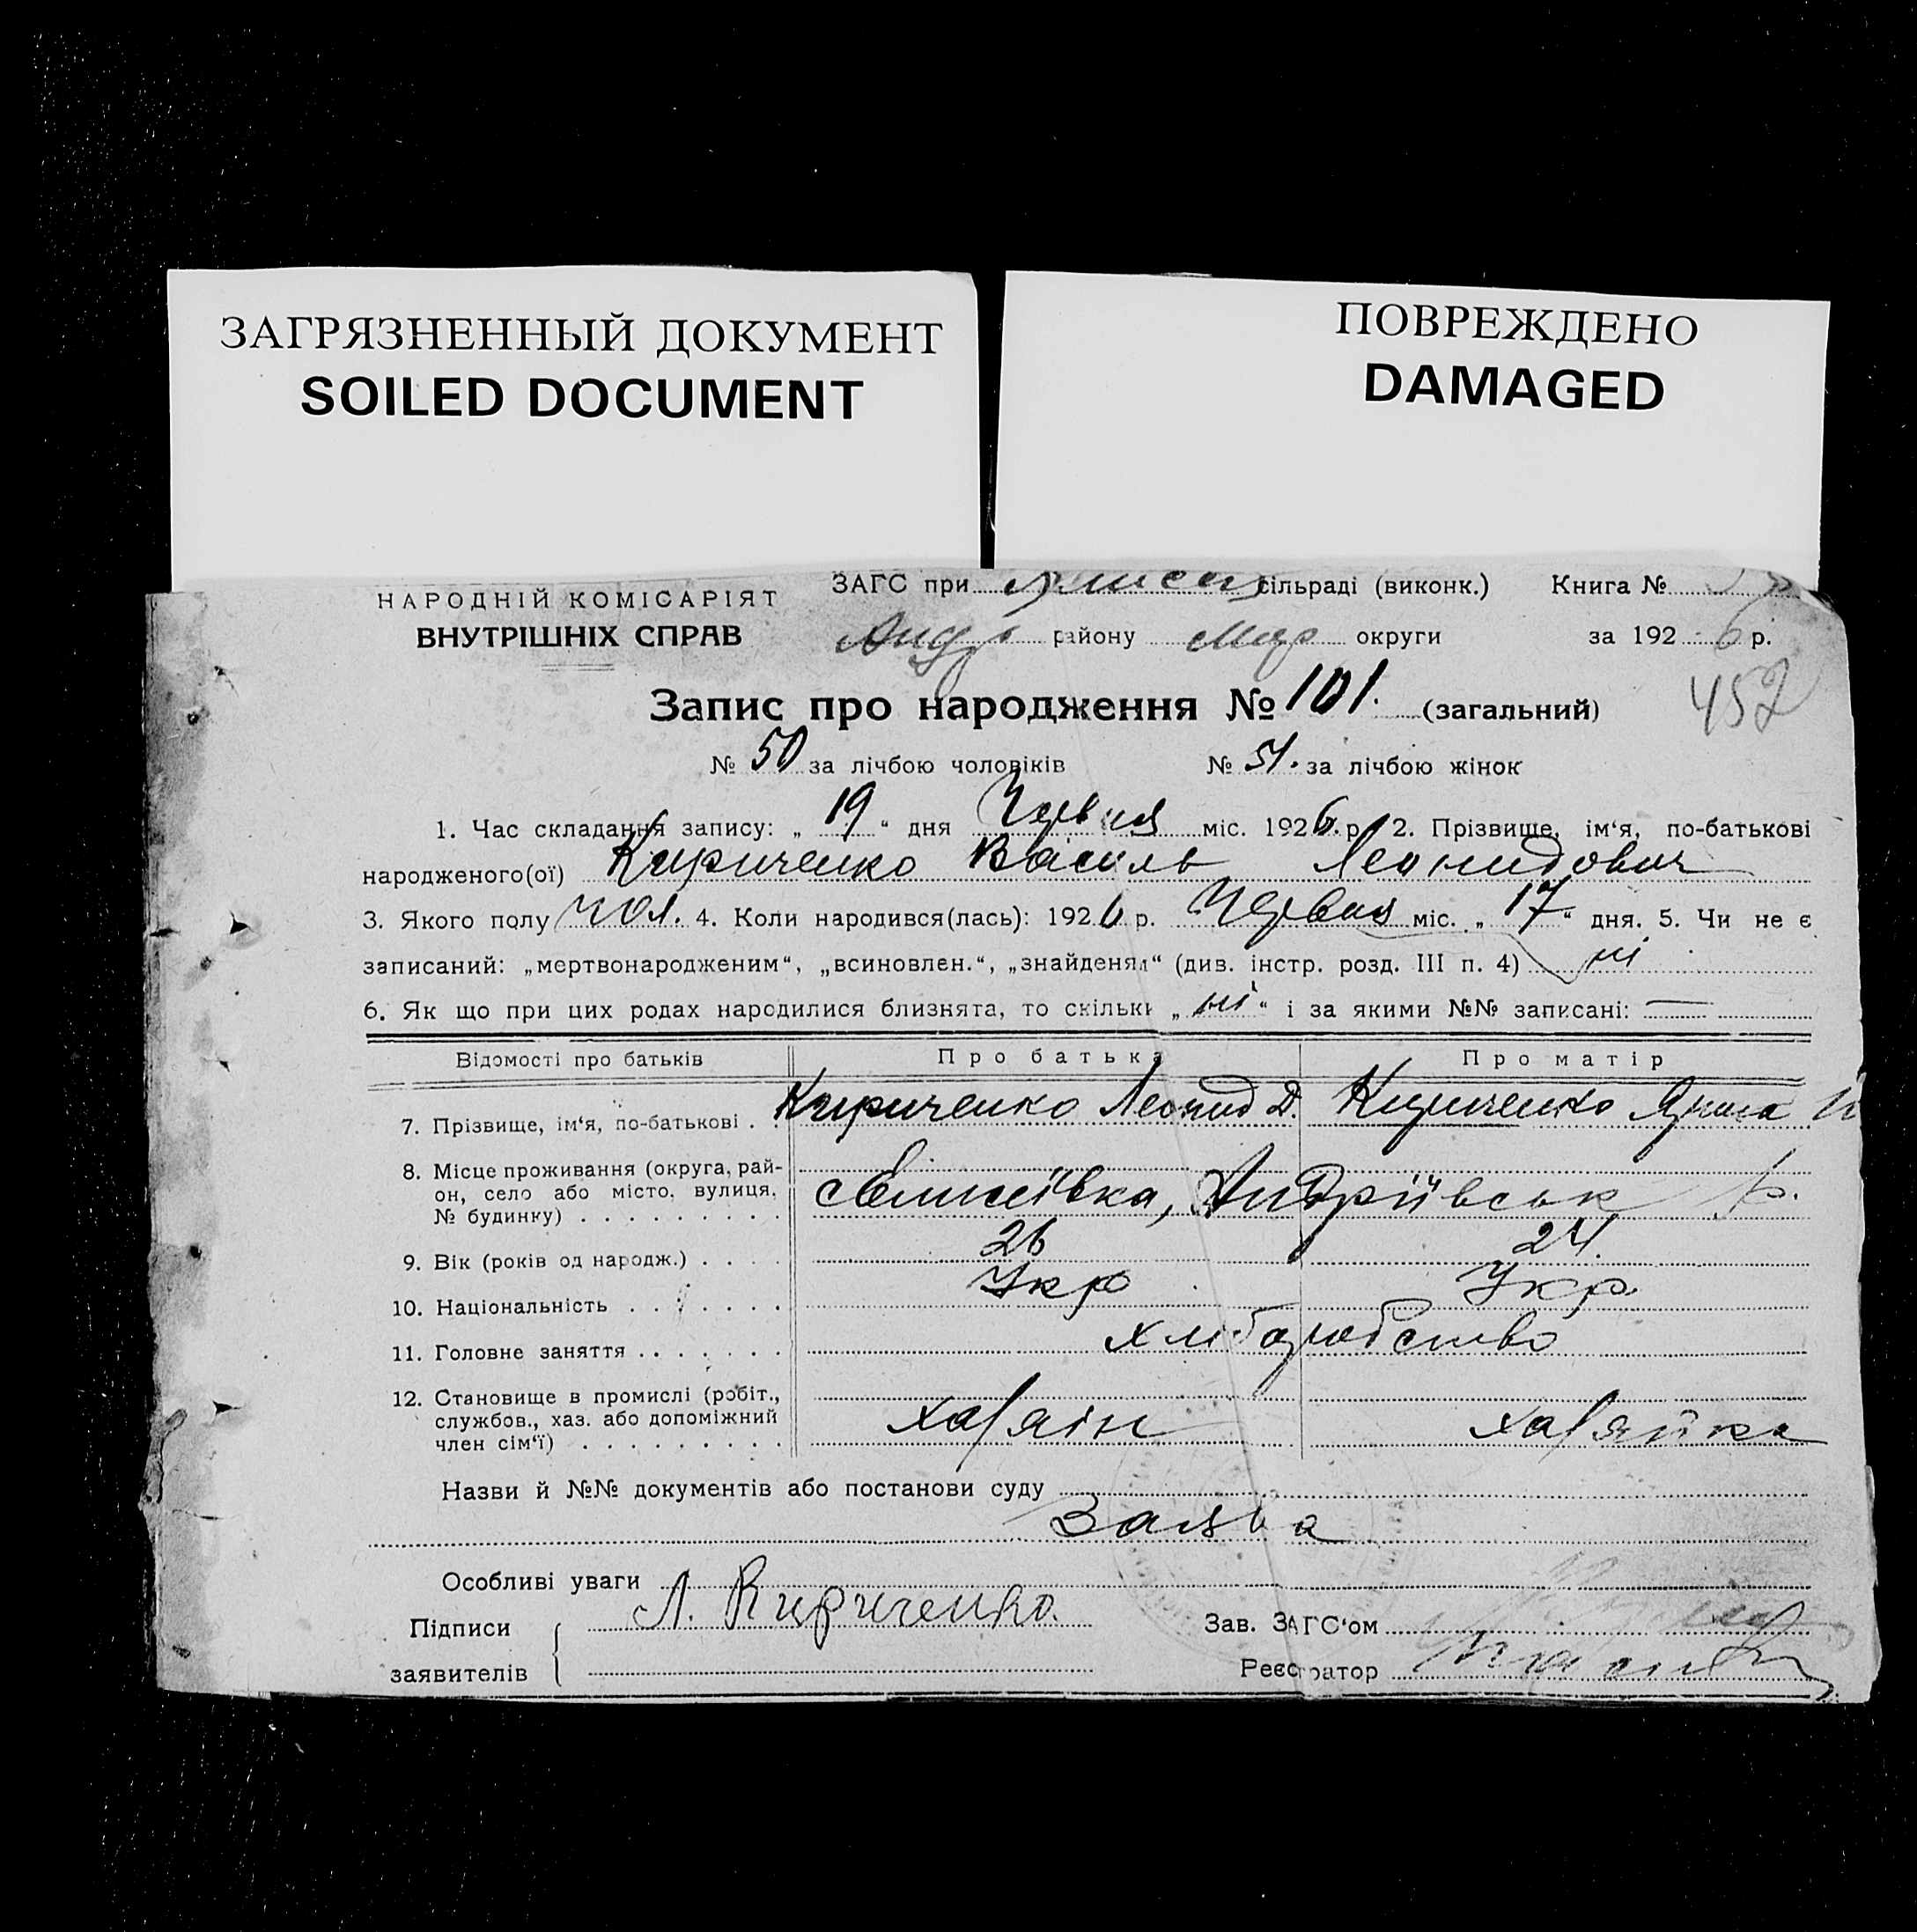 ЗАГРЯЗНЕННЫЙ ДОКУМЕНТ
SOILED DOCUMENT
ПОВРЕЖДЕНО
DAMAGED
НАРОДНІЙ КОМІСАРІЯТ
ВНУТРІШНІХ СПРАВ
ЗАГС при сільраді (виконк.) Книга №
Андр району Мар округи за 1926 р.
Запис про народження № 101. (загальний)
452
№ 50 за лічбою чоловіків № 51. за лічбою жінок
1. Час складання запису: „ 19 “ дня Червня міс. 1926 р. 2. Прізвище, ім‘я, по-батькові
народженого(ої) Кириченко Василь Леонидович
3. Якого полу чол. 4. Коли народився(лась): 1926 р. Червня міс. „ 17 “ дня. 5. Чи не є
записаний: „мертвонародженим“, „всиновлен.“, „знайденям“ (див. інстр. розд. III п. 4) ні
6. Як що при цих родах народилися близнята, то скільки „ ні “ і за якими №№ записані: —
Відомості про батьків Про батька Про матір
7. Прізвище, ім‘я, по-батькові . . Кириченко Леонид Д. Кириченко Ярина
8. Місце проживання (округа, рай-
он, село або місто, вулиця,
№ будинку) . . . . . . . . . Андріївськ р.
9. Вік (років од народж.) . . . . 26 24.
10. Національність . . . . . . . Укр Укр.
11. Головне заняття . . . . . . . хліборобство
12. Становище в промислі (робіт.,
службов., хаз. або допоміжний
член сім‘ї) . . . . . . . . . хазяін хазяйка
Назви й №№ документів або постанови суду
Заява
Особливі уваги
Підписи Л. Кириченко. Зав. ЗАГС‘ом
заявителів Реєстратор